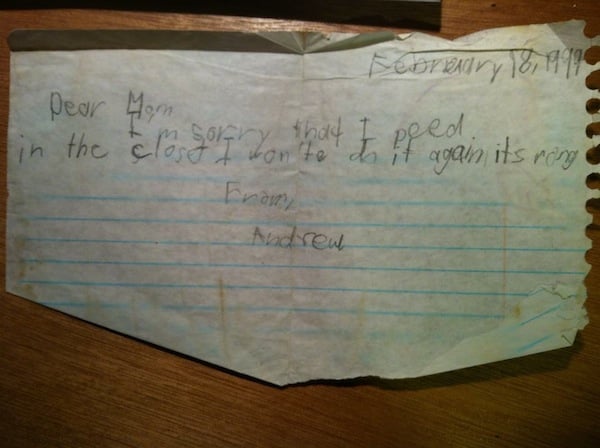 February 18, 1999
Dear Mom
I'm sorry that I peed
in the closet I won'te do it again, its rong
From,
Andrew